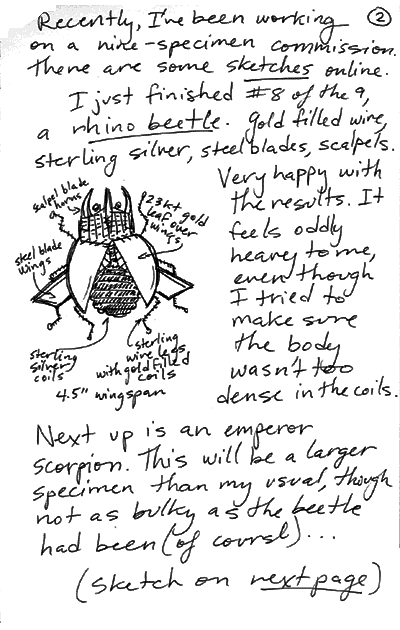 Recently, I've been working
②
on a nine-specimen commission.
There are some sketches online.
I just finished #8 of the 9,
a rhino beetle. gold filled wire,
sterling silver, steel blades, scalpels.
Very happy with
the results. It
feels oddly
heavy to me,
even though
I tried to
make sure
the body
wasn't too
dense in the coils.
scalpel blade
horns
23kt gold
leaf over
wings
steel blade
wings
sterling
silver
coils
sterling
wire legs
with gold filled
coils
4.5" wingspan
Next up is an emperor
scorpion. This will be a larger
specimen than my usual, though
not as bulky as the beetle
had been (of course)...
(sketch on next page)